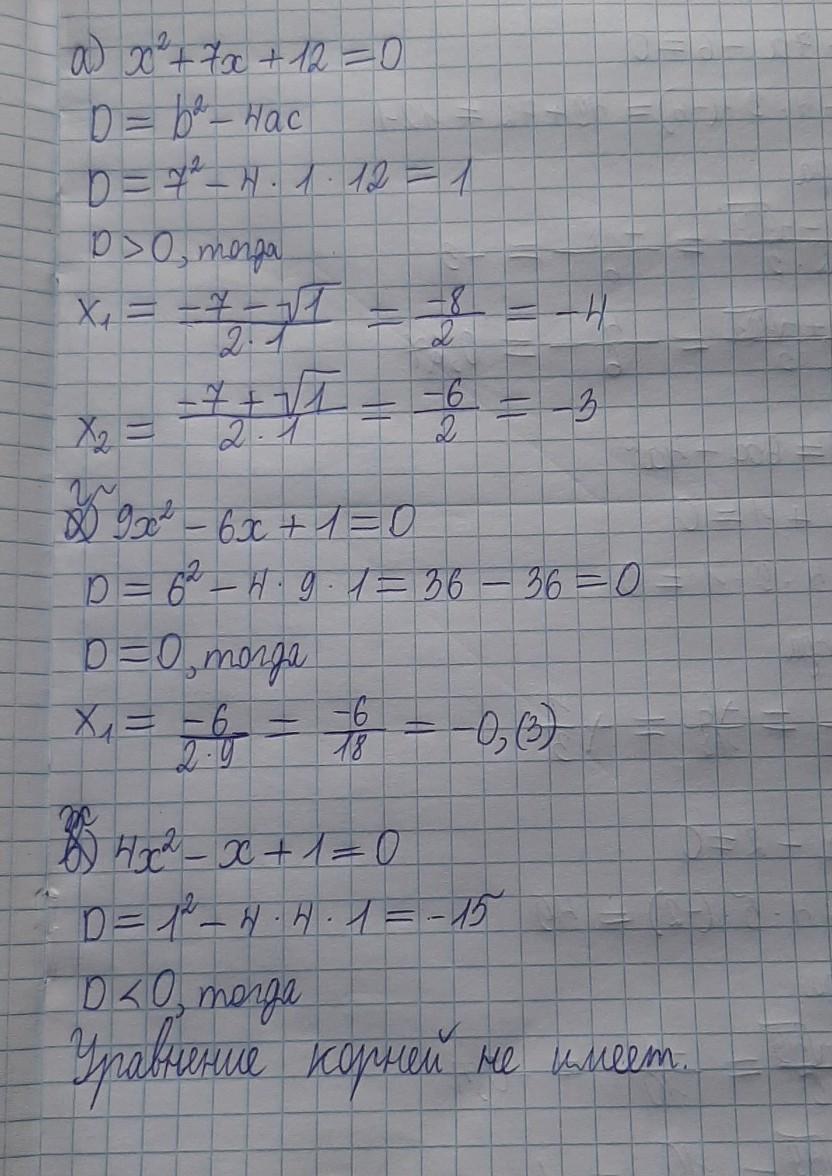 а) x² + 7x + 12 = 0
D = b² - 4ac
D = 7² - 4 · 1 · 12 = 1
D > 0, тогда
x₁ = (-7 - √1)/(2·1) = -8/2 = -4
x₂ = (-7 + √1)/(2·1) = -6/2 = -3
9x² - 6x + 1 = 0
D = 6² - 4 · 9 · 1 = 36 - 36 = 0
D = 0, тогда
x₁ = -6/(2·9) = -6/18 = -0,(3)
4x² - x + 1 = 0
D = 1² - 4 · 4 · 1 = -15
D < 0, тогда
Уравнение корней не имеет.